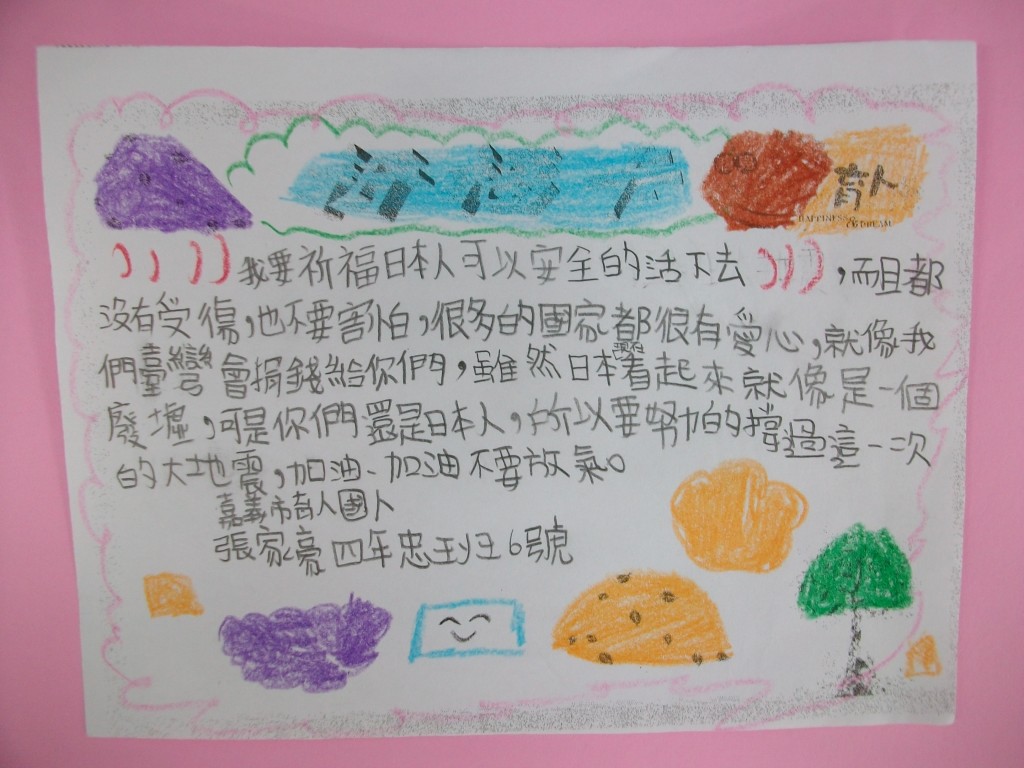 育人
HAPPINESS &
DREAM
我要祈福日本人可以安全的活下去,而且都
沒有受傷,也不要害怕,很多的國家都很有愛心,就像我
們臺灣會捐錢給你們,雖然日本現在看起來就像是一個
廢墟,可是你們還是日本人,所以要努力的撐過這一次
的大地震,加油、加油不要放氣。
嘉義市育人國小
張家豪四年忠班6號